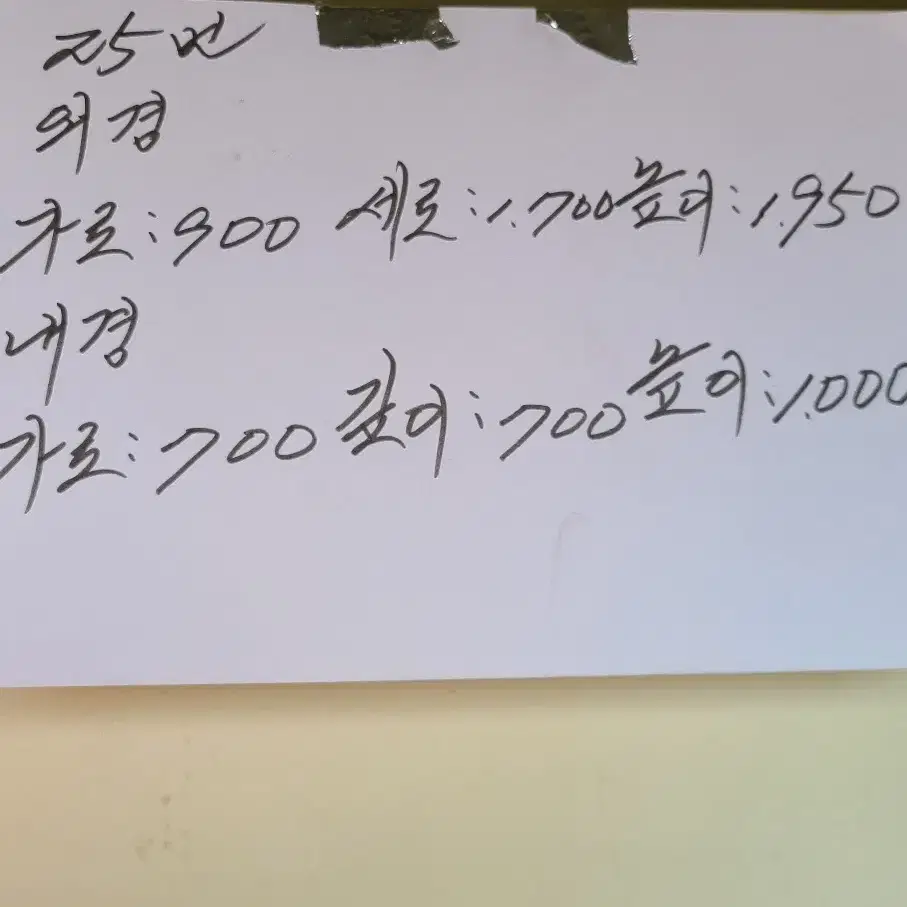 25만
외경
가로:900 세로:1.700 높이:1.950
내경
가로:700 깊이:700 높이:1.000